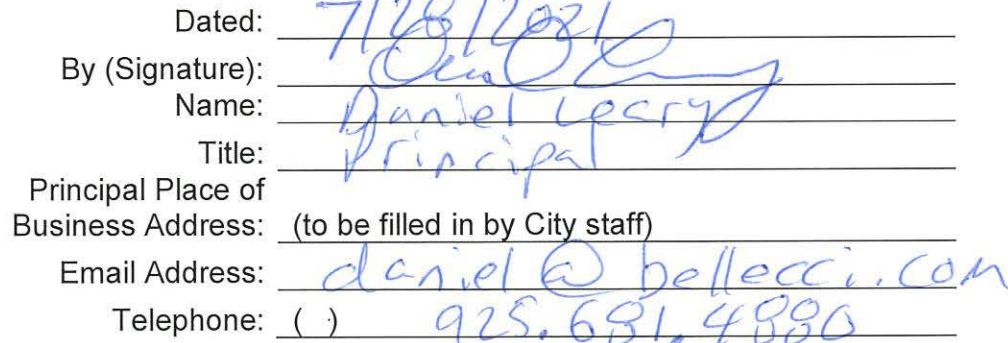 Dated: 7/28/2021
By (Signature):
Name: Daniel Leary
Title: Principal
Principal Place of
Business Address: (to be filled in by City staff)
Email Address: daniel@bellecci.com
Telephone: ( ) 925.681.4880